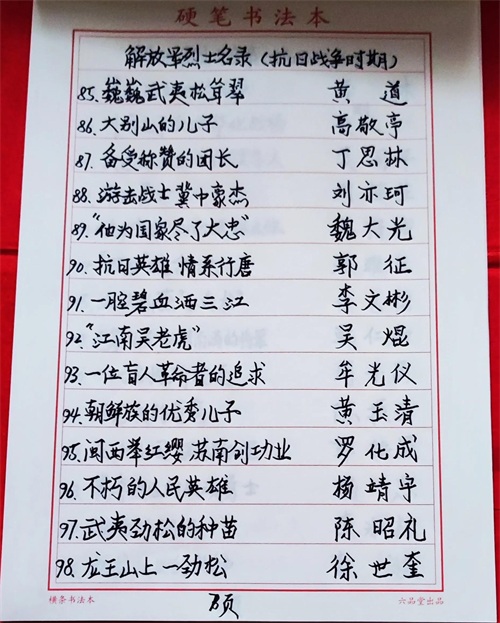 硬笔书法本
解放军烈士名录(抗日战争时期)
85.巍巍武夷松茸翠 黄道
86.大别山的儿子 高敬亭
87.备受称赞的团长 丁思林
88.游击战士冀中豪杰 刘亦珂
89."他为国家尽了大忠" 魏大光
90.抗日英雄 情系行唐 郭征
91.一腔碧血洒三江 李文彬
92."江南吴老虎" 吴焜
93.一位盲人革命者的追求 牟光仪
94.朝鲜族的优秀儿子 黄玉清
95.闽西举红缨 苏南创功业 罗化成
96.不朽的人民英雄 杨靖宇
97.武夷劲松的种苗 陈昭礼
98.龙王山上一劲松 徐世奎
横条书法本 页 六品堂出品